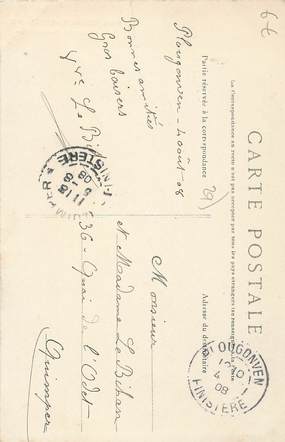 6€
CARTE POSTALE
La Correspondance au recto n'est pas acceptée par tous les pays étrangers (se renseigner
Partie réservée à la correspondance
Adresse du destinataire
29)
Plougonven - 4 août 08
Bonnes amitiés
Gros baisers
Yve Le Bi
Monsieur
et Madame Le Bihan
36 - Quai de l'Odet
Quimper
FINISTERE
OUGONVEN
4
08
FINISTERE